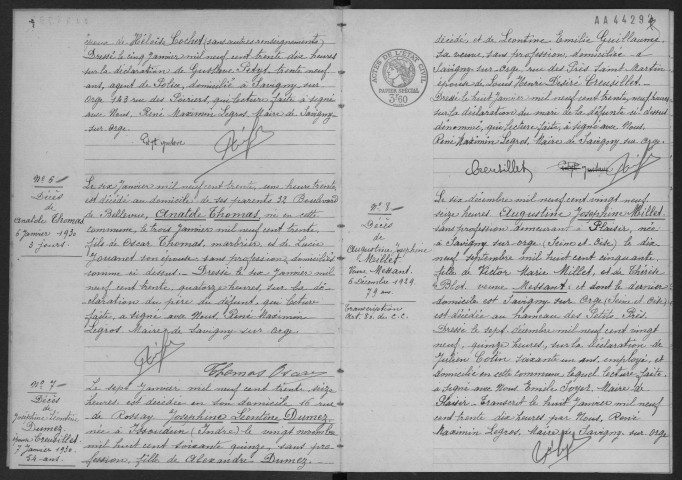 époux de Héloïse Cochet (sans autres renseignements)
Dressé le cinq janvier mil neuf cent trente deux heures
sur la déclaration de Gustave Petyt, trente neuf
ans, agent de Police, domicilié à Savigny sur
Orge 143 rue des Poiriers, qui lecture faite a signé
avec Nous, René Maximin Legros, Maire de Savigny
sur Orge.
N° 6
Décès
de
Anatole Thomas
6 janvier 1930
3 jours.
Le six janvier mil neuf cent trente, une heure trente
est décédé au domicile de ses parents 32 Boulevard
de Bellevue, Anatole Thomas, né en cette
commune, le trois janvier mil neuf cent trente,
fils de Oscar Thomas, marbrier et de Lucie
son épouse sans profession, domiciliés
comme ci dessus. Dressé le six janvier mil
neuf cent trente, quatorze heures, sur la dé
claration du père du défunt, qui lecture
faite, a signé avec Nous, René Maximin
Legros Maire de Savigny sur Orge.
Thomas Oscar
N° 7
Décès
de
Joséphine Léontine
Dumez
épouse Creusillet
7 janvier 1930
54 ans.
Le sept janvier mil neuf cent trente seize
heures, est décédée en son domicile 16 rue
de Rossay, Joséphine Léontine Dumez,
née à Issoudun (Indre) le vingt novembre
mil huit cent soixante quinze, sans pro
fession, fille de Alexandre Dumez
AA44292
ACTES DE L'ÉTAT CIVIL
PAPIER SPÉCIAL
3f60
décédé, et de Léontine Emilie Guillaume,
sa veuve sans profession, domiciliée à
Savigny sur Orge, rue des Prés Saint Martin
épouse de Louis Henri Désiré Creusillet.
Dressé le huit janvier mil neuf cent trente, neuf heures
sur la déclaration du mari de la défunte ci dessus
dénommé, qui lecture faite, a signé avec Nous,
René Maximin Legros, Maire de Savigny sur Orge.
Creusillet
N° 8
Décès
de
Augustine Joséphine
Millet
Veuve Messant
6 Décembre 1929
79 ans
Transcription
Art. 80 du C.C.
Le six décembre mil neuf cent vingt neuf,
seize heures, Augustine Joséphine Millet
sans profession demeurant à Plaisir, née
à Savigny sur Orge (Seine et Oise) le dix
neuf septembre mil huit cent cinquante,
fille de Victor Marie Millet, et de Thérèse
Blot, veuve Messant et dont le dernier
domicile est Savigny sur Orge (Seine et Oise)
est décédée au hameau des Petits Prés.
Dressé le sept décembre mil neuf cent vingt
neuf, quinze heures, sur la déclaration de
Julien Colin soixante un ans, employé, et
domicilié en cette commune, lequel lecture faite,
a signé avec Nous Emile Maire de
Plaisir. Transcrit le huit janvier mil neuf
cent trente dix heures par Nous, René
Maximin Legros, Maire de Savigny sur Orge